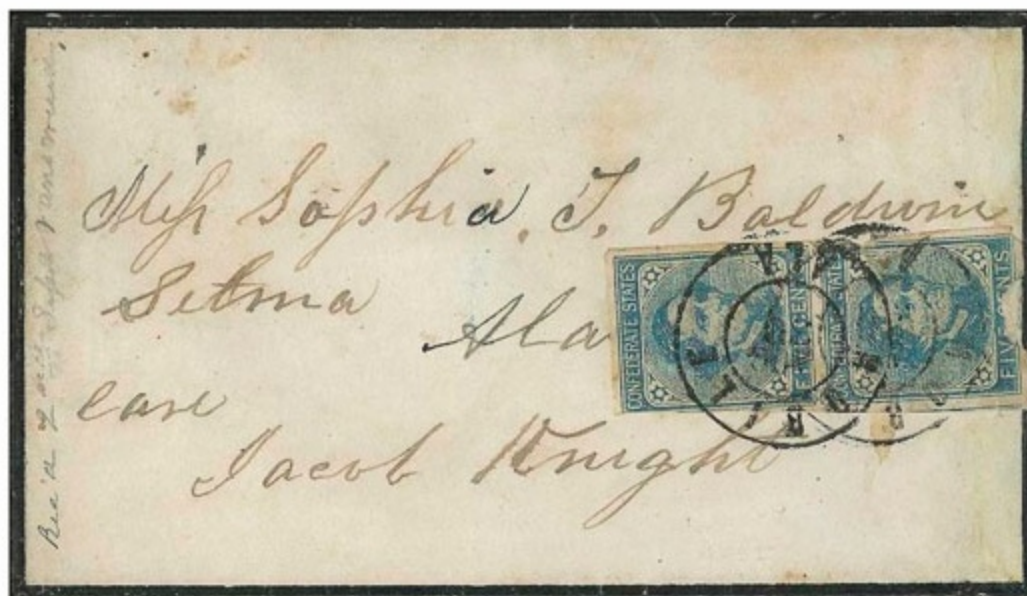 Miss Sophia, T. Baldwin
Selma
Ala
care
Jacob Knight
CONFEDERATE STATES
FIVE CENTS
CONFEDERATE STATES
FIVE CENTS
MOBILE
ALA